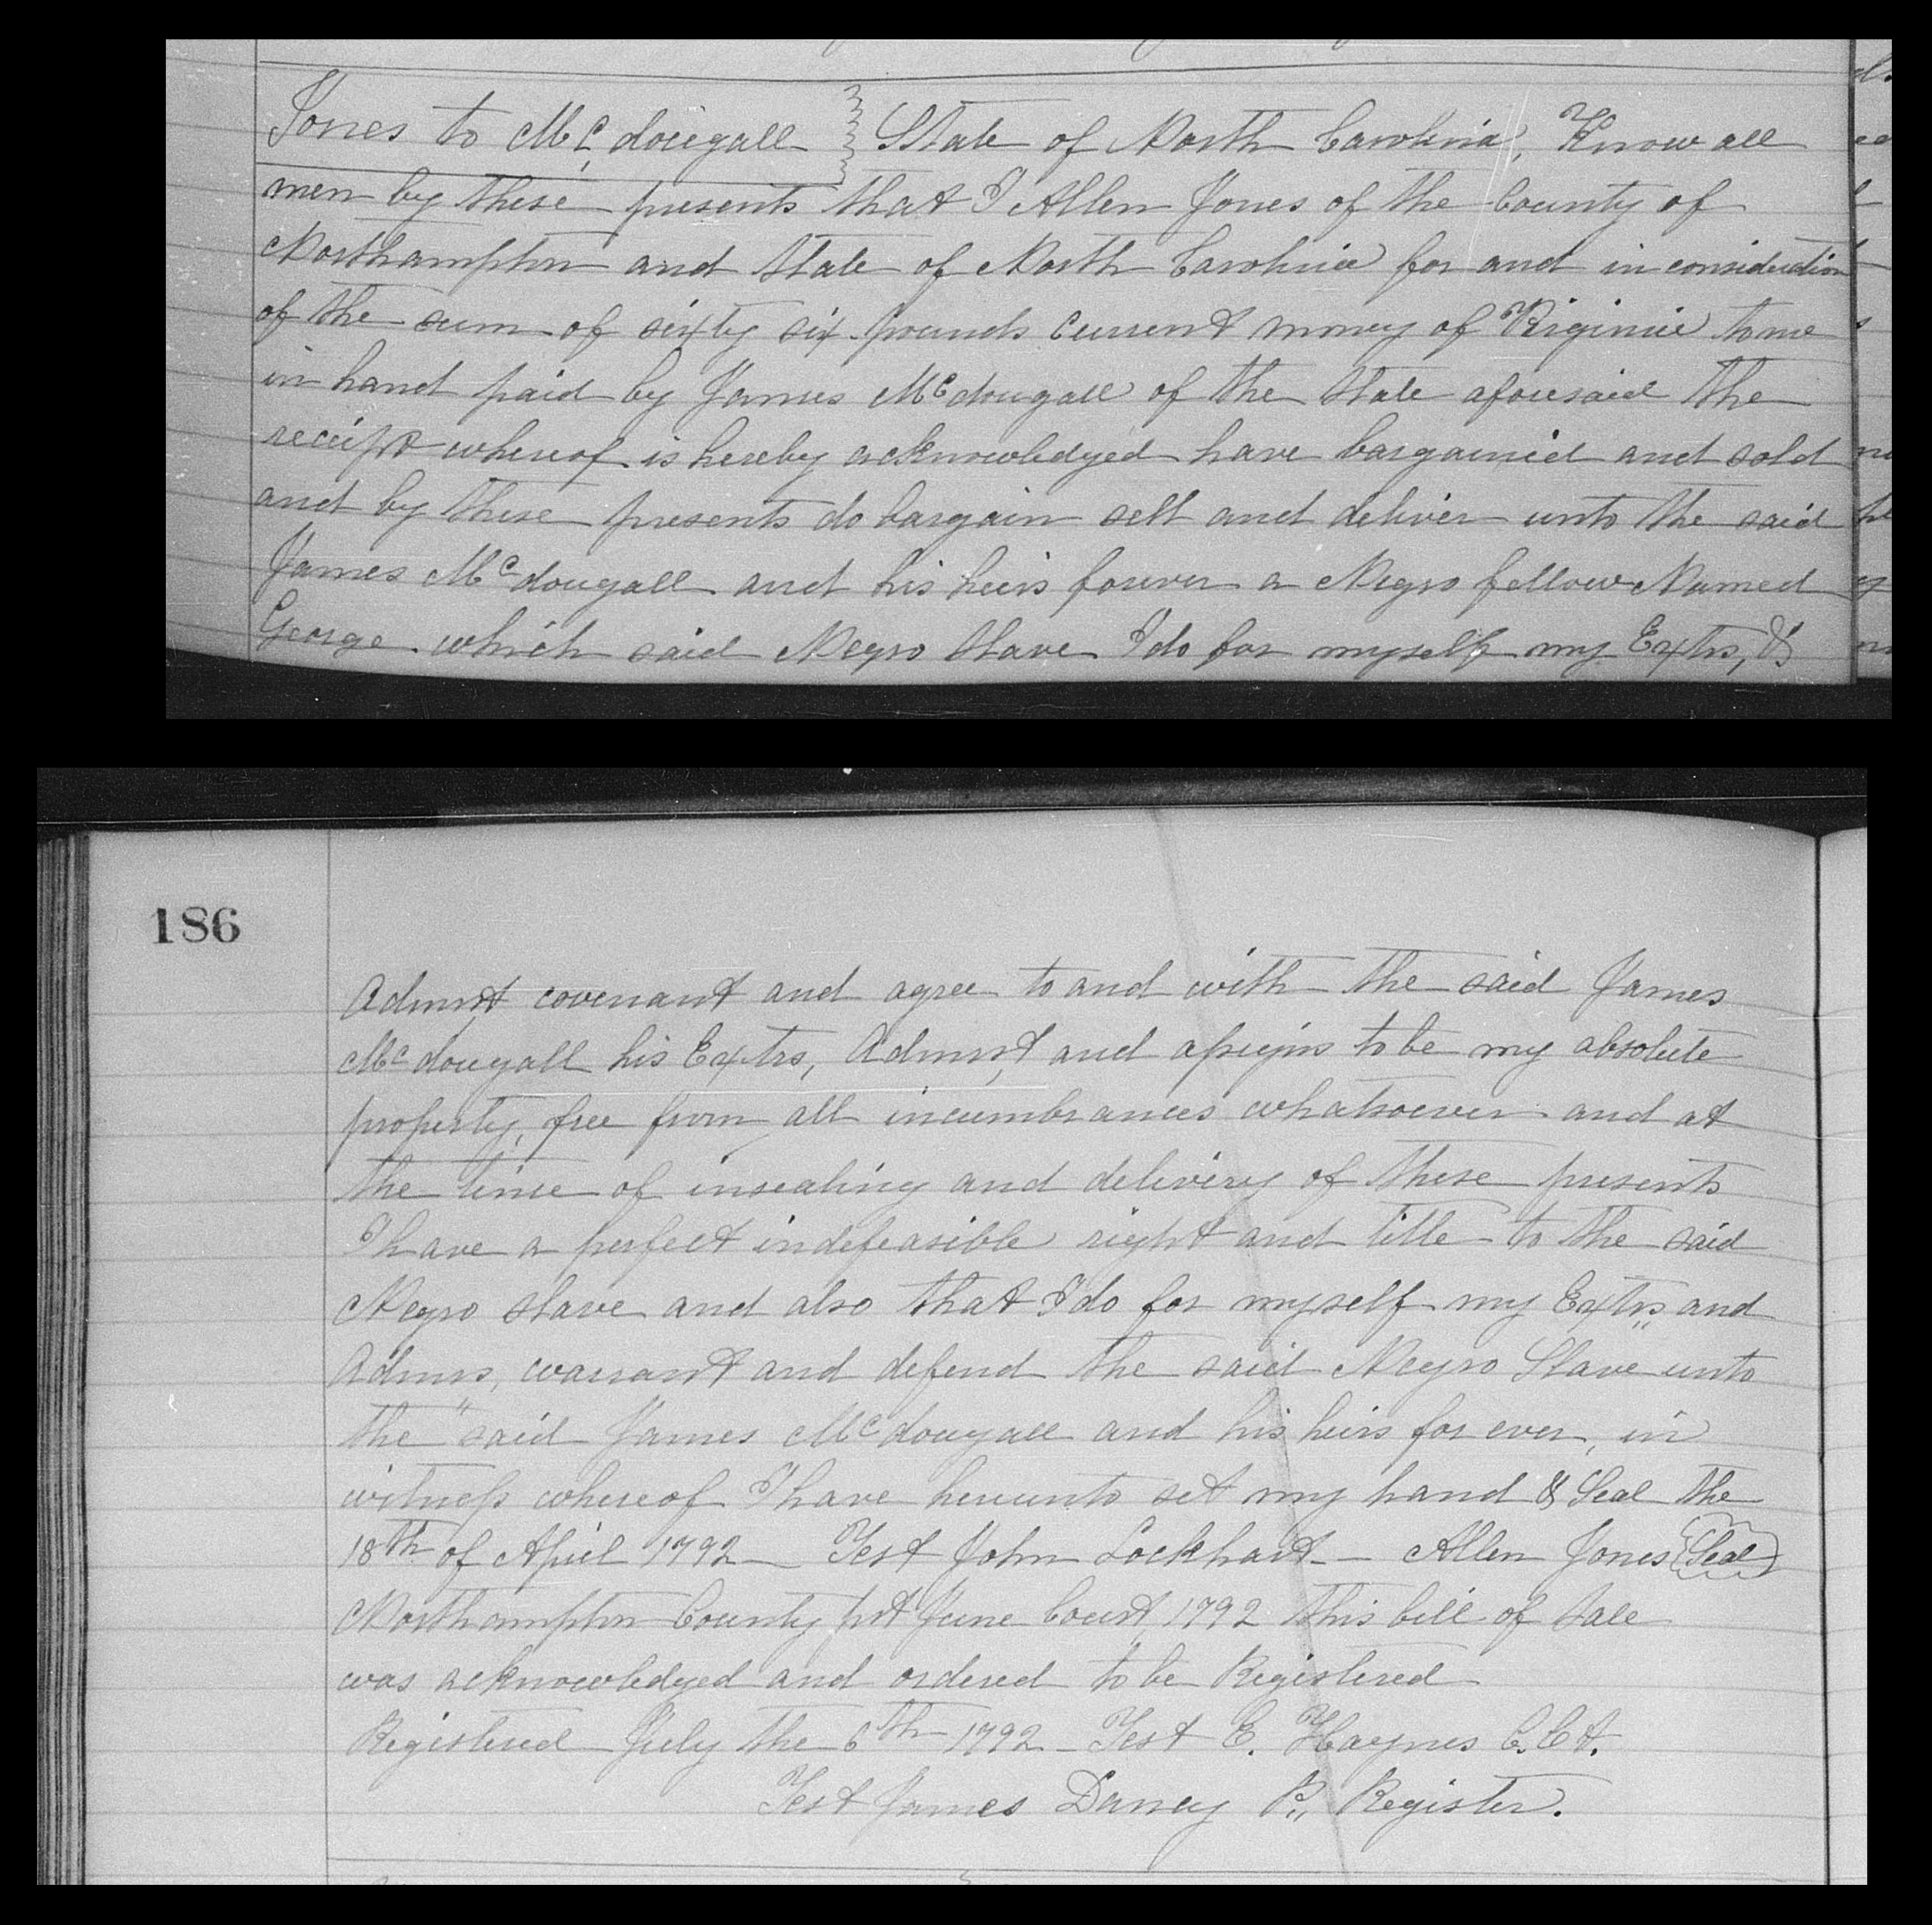 Jones to Mc dougall } State of North Carolina, Know all
men by these presents that I Allen Jones of the County of
Northampton and State of North Carolina for and in consideration
of the sum of sixty six pounds current money of Virginia to me
in hand paid by James Mc dougall of the State aforesaid the
receipt whereof is hereby acknowledged have bargained and sold
and by these presents do bargain sell and deliver unto the said
James Mc dougall and his heirs forever a Negro fellow Named
George which said Negro Slave I do for myself my Extrs, &
186
Admrs covenant and agree to and with the said James
Mc dougall his Extrs, Admrs, and assigns to be my absolute
property, free from all incumbrances whatsoever and at
the time of insealing and delivery of these presents
I have a perfect indefeasible right and title to the said
Negro slave and also that I do for myself my Extrs, and
Admrs, warrant and defend the said Negro Slave unto
the said James Mc dougall and his heirs for ever, in
witness whereof I have hereunto set my hand & Seal the
18th of April 1792 — Test John Lockhart — Allen Jones (Seal)
Northampton County June Court 1792 this bill of Sale
was acknowledged and ordered to be Registered
Registered July the 6th 1792 — Test E. Haynes C. Ct.
Test James Dancy P,, Register.